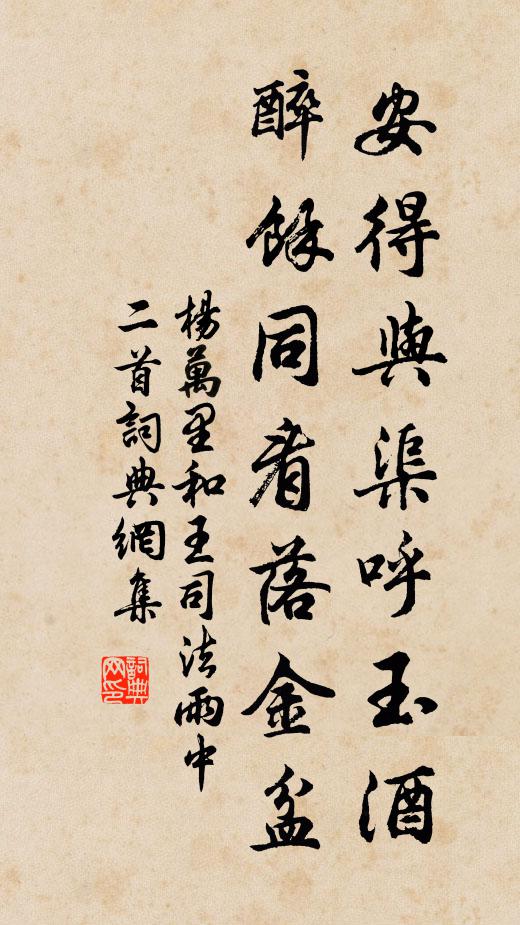 安得與渠呼玉酒
醉餘同看落金盆
楊萬里和王司法雨中
二首詞典網集
詞典
网印